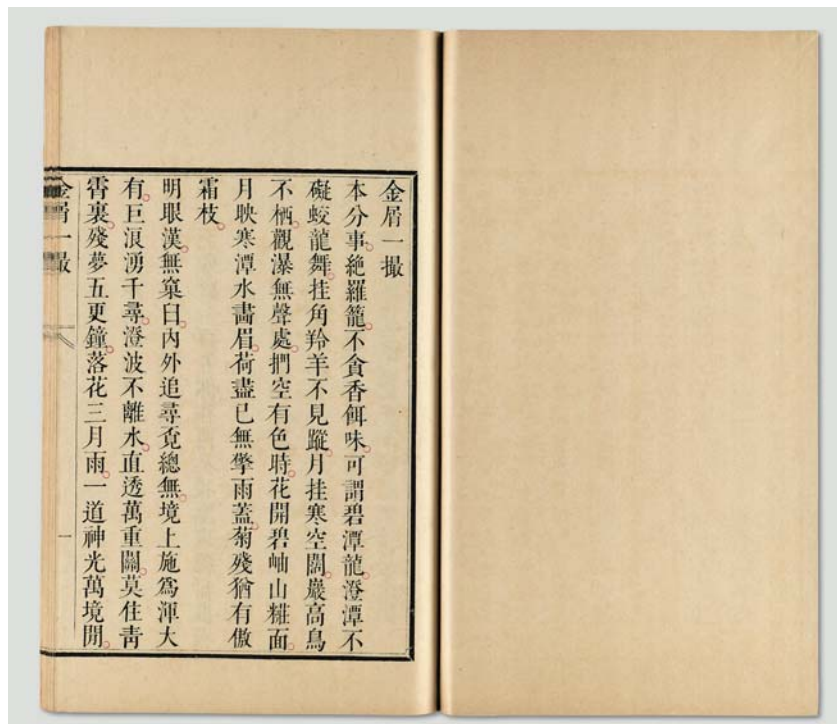 金屑一撮
本分事。絕羅籠。不貪香餌味。可謂碧潭龍。澄潭不
礙蛟龍舞。挂角羚羊不見蹤。月挂寒空闊。巖高鳥
不栖。觀瀑無聲處。捫空有色時。花開碧岫山糚面。
月映寒潭水畵眉。荷盡已無擎雨蓋。菊殘猶有傲
霜枝。
明眼漢。無窠臼。內外追尋覓總無。境上施爲渾大
有。巨浪湧千尋。澄波不離水。直透萬重關。莫住靑
霄裏。殘夢五更鐘。落花三月雨。一道神光萬境閒。
金屑一撮
一